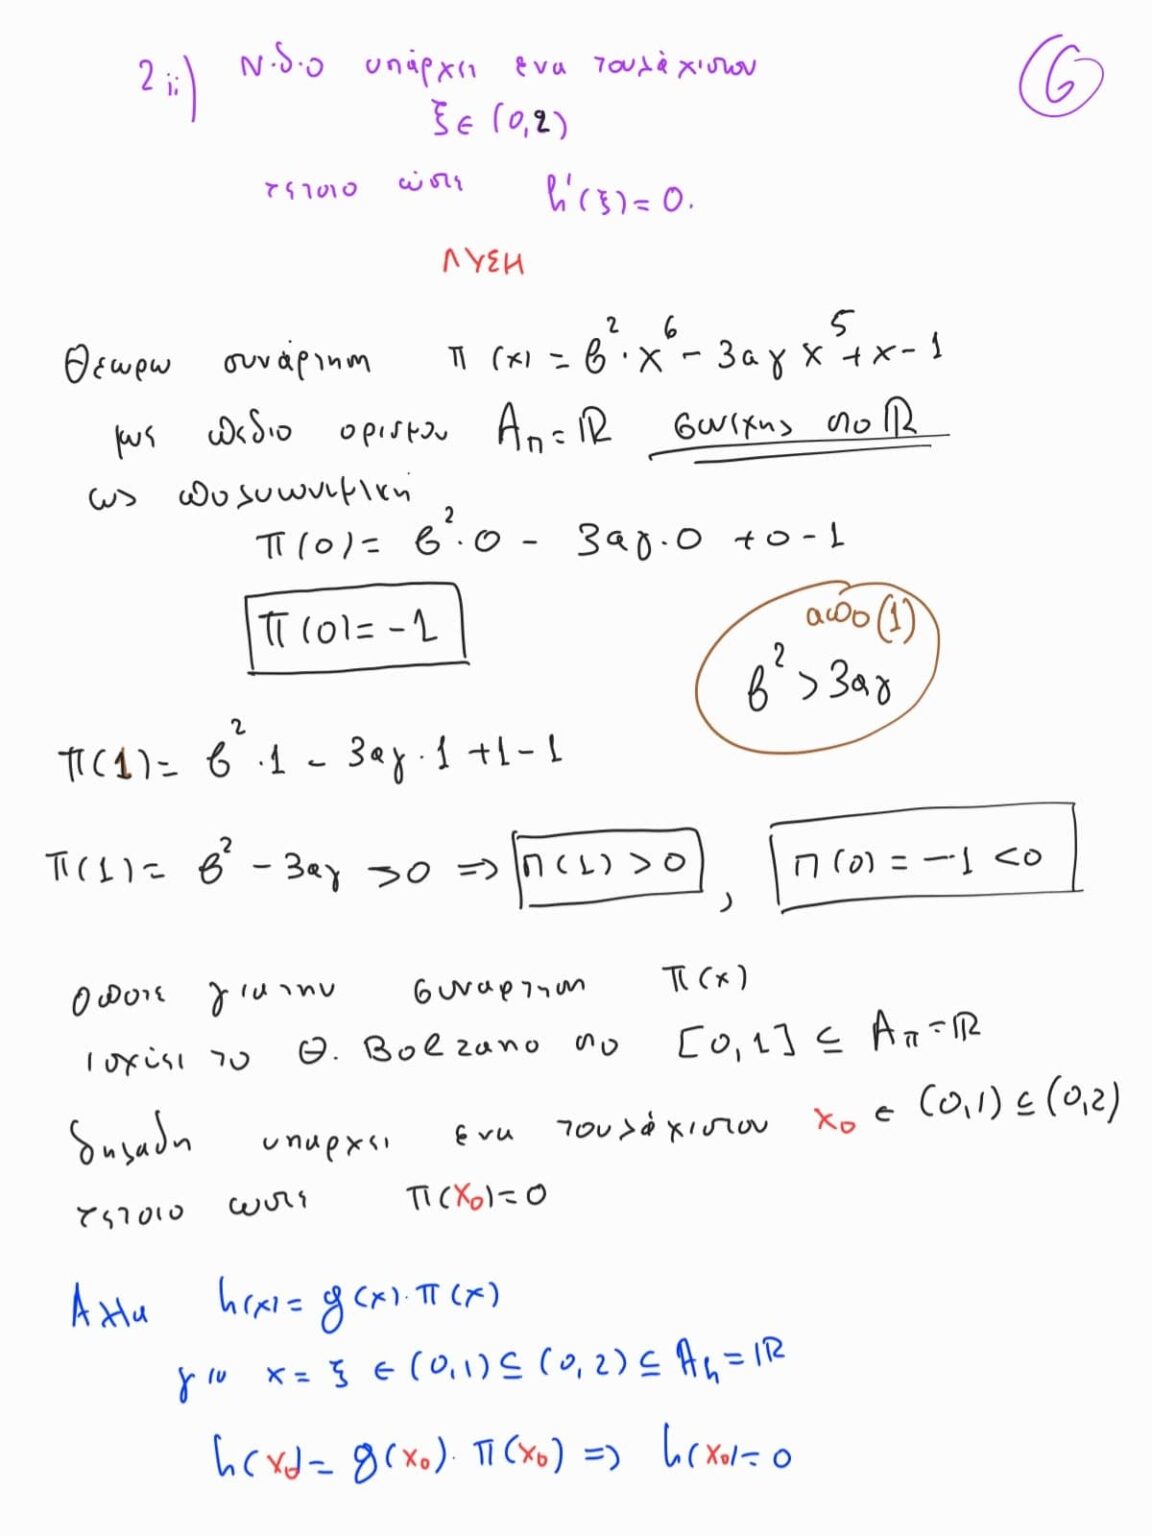 2ii) Ν.δ.ο υπάρχει ενα τουλάχιστον
6
ξ ∈ (0,2)
τέτοιο ώστε h'(ξ)=0.
ΛΥΣΗ
Θεωρω συνάρτηση π(x) = β²·x⁶ - 3αγx⁵ + x - 1
με πεδιο ορισμου A_π = ℝ συνεχης στο ℝ
ως πολυωνυμική
π(0) = β²·0 - 3αγ·0 + 0 - 1
π(0) = -1
απο (1)
β² > 3αγ
π(1) = β²·1 - 3αγ·1 + 1 - 1
π(1) = β² - 3αγ > 0 ⇒ π(1) > 0 , π(0) = -1 < 0
οποτε για την συναρτηση π(x)
ισχύει το Θ. Bolzano στο [0,1] ⊆ A_π = ℝ
δηλαδη υπαρχει ενα τουλάχιστον x₀ ∈ (0,1) ⊆ (0,2)
τέτοιο ωστε π(x₀) = 0
Αλλα h(x) = g(x)·π(x)
για x = ξ ∈ (0,1) ⊆ (0,2) ⊆ A_h = ℝ
h(x₀) = g(x₀)·π(x₀) ⇒ h(x₀) = 0